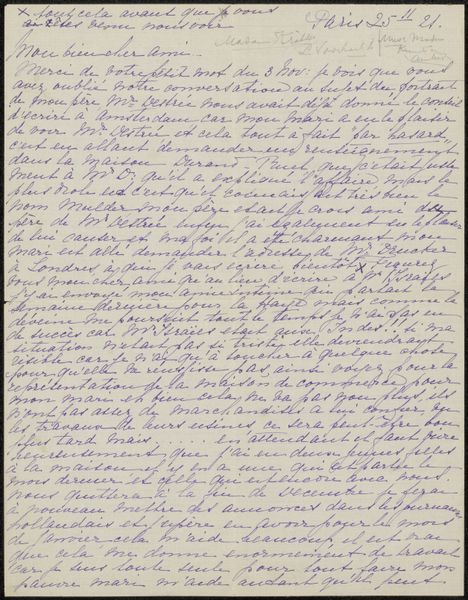 x tout cela avant que je vous
Paris 25 11 21.
Mon bien cher ami
Merci de votre petit mot du 3 Nov. je vois que vous
avez oublié notre conversation au sujet du portrait
de mon père Mr Destrée nous avait déjà donné le conseil
d'écrire à Amsterdam car mon mari a eu le plaisir
de voir Mr Destrée et cela tout à fait "par hasard"
c'est en allant demander un renseignement
dans la maison Durand-Ruel que c'était juste
ment à Mr D. qu'il a expliqué l'affaire mais le
plus drôle c'est qu'il connait très bien le
nom Mulder mon père étant je crois ami du
père de Mr Destrée enfin j'ai également eu le plaisir
de lui causer et ma foi il a été charmant mon
mari est allé demander l'adresse de
à Londres à qui je vais écrire bientôt x figurez
vous mon cher ami que au lieu d'écrire à Mr Israels
j'y ai envoyé mon amie qui partait la
semaine dernière pour la Haye mais comme la
déveine me poursuit tout le temps je n'ai pas eu
de succès car Mr Israels était aux Indes!! si ma
situation n'était pas si triste elle deviendrait
risible car je n'ai qu'à toucher à quelque chose
pour qu'elle ne réussisse pas, ainsi voyez pour la
représentation de la maison de commerce pour
mon mari et bien cela ne va pas non plus, ils
n'ont pas assez de marchandises à lui confier vu
les travaux de leurs usines ce sera peut-être bon
plus tard mais ..... en attendant il faut vivre
heureusement que j'ai eu deux jeunes filles
à la maison il y en a une qui est partie le
mois dernier et celle qui est encore avec nous
nous quittera à la fin de Decembre je ferai
à nouveau mettre des annonces dans les journaux
hollandais et j'espère en avoir pour le mois
de janvier cela m'aide beaucoup il est vrai
que cela me donne enormement de travail
car je suis toute seule pour tout faire mon
pauvre mari m'aide autant qu'il peut